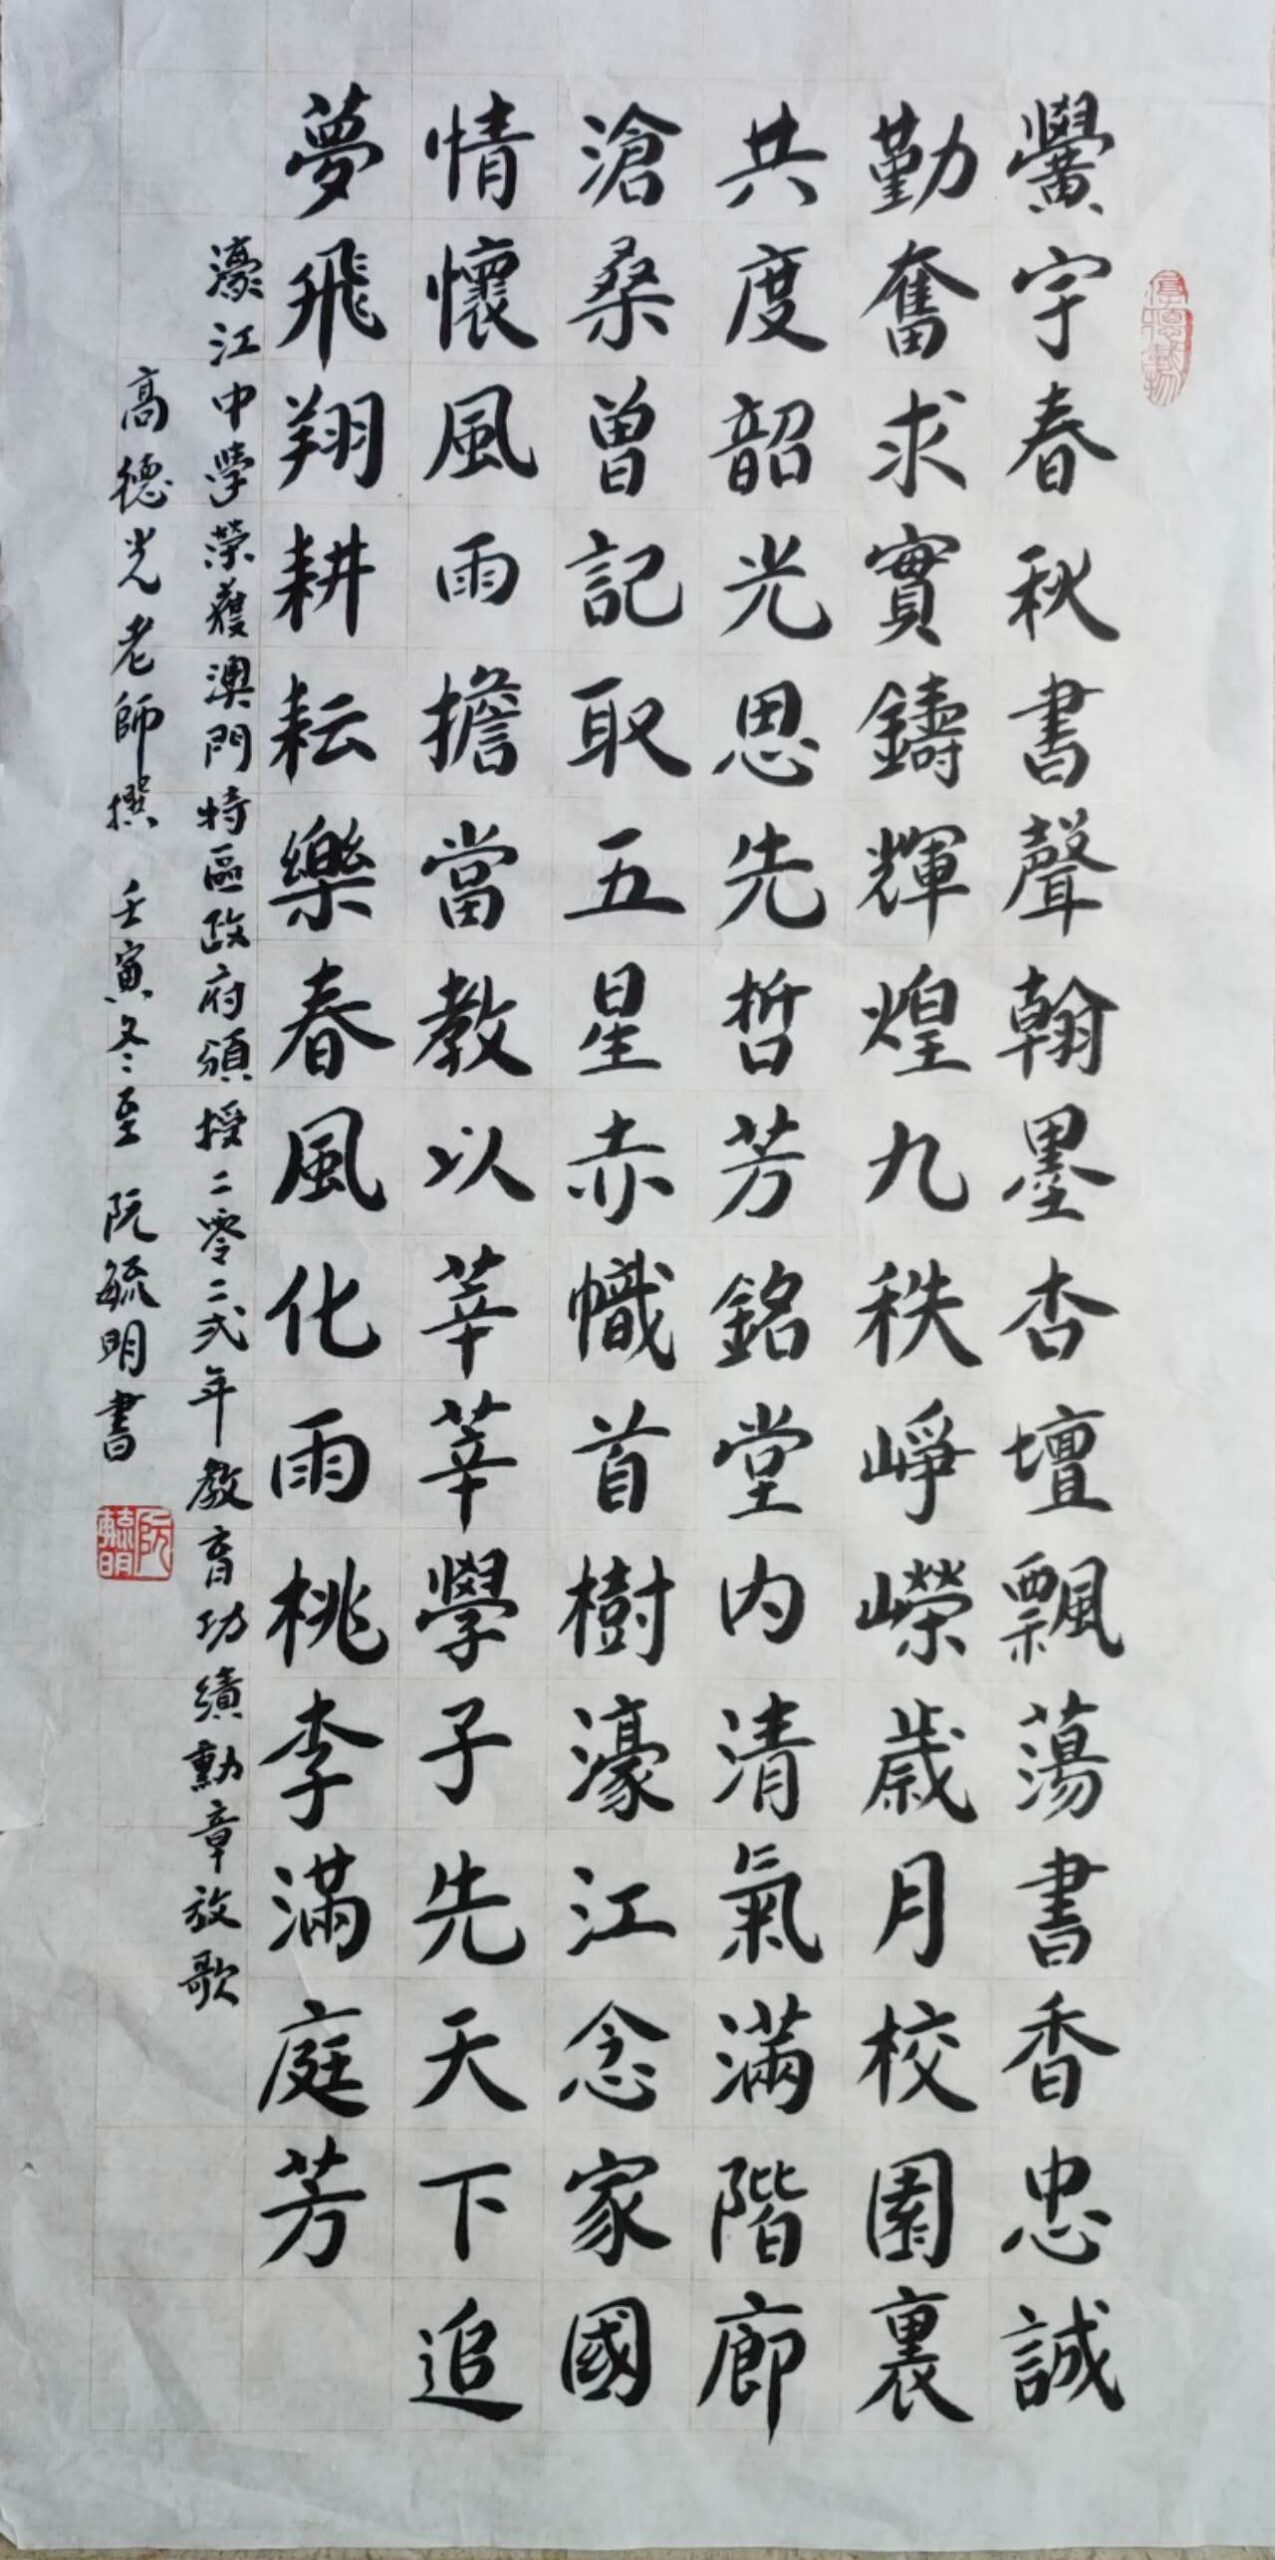 黌宇春秋書聲翰墨杏壇飄蕩書香忠誠
勤奮求實鑄輝煌九秩崢嶸歲月校園裏
共度韶光思先哲芳銘堂內清氣滿階廊
滄桑曾記取五星赤幟首樹濠江念家國
情懷風雨擔當教以莘莘學子先天下追
夢飛翔耕耘樂春風化雨桃李滿庭芳
濠江中學榮獲澳門特區政府頒授二零二弍年教育功績勳章放歌
高德光老師撰 壬寅冬至 阮毓明書
厚德載物
阮毓明